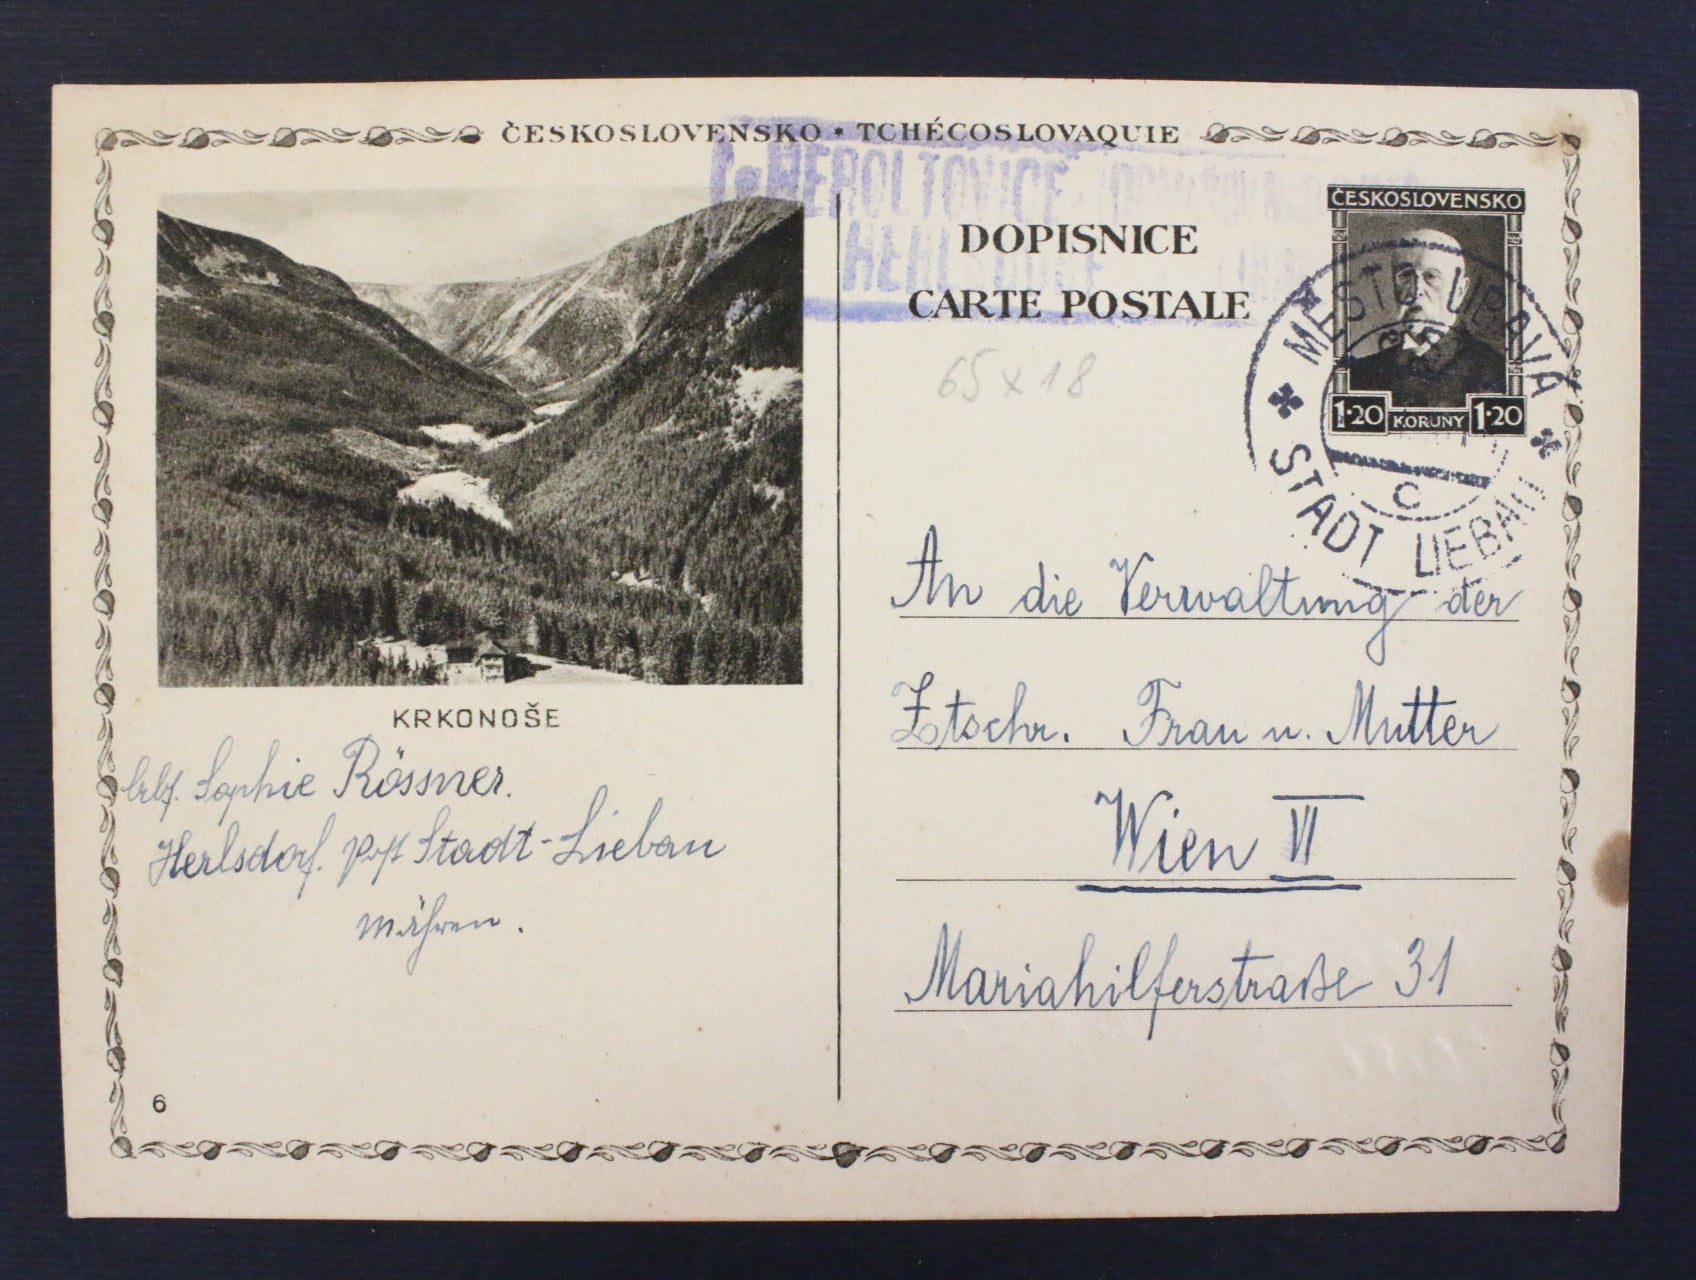 ČESKOSLOVENSKO * TCHÉCOSLOVAQUIE
HEROLTOVICE
DOPISNICE
CARTE POSTALE
ČESKOSLOVENSKO
1·20 KORUNY 1·20
MĚSTO LIBAVÁ
C
STADT LIEBAU
65 x 18
An die Verwaltung der
Ztschr. Frau u. Mutter
Wien VI
Mariahilferstraße 31
KRKONOŠE
Sophie Rössner.
Herlsdorf. Post Stadt-Liebau
Mähren.
6